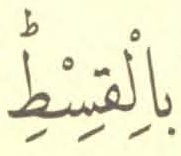 بِالْقِسْطِؕ